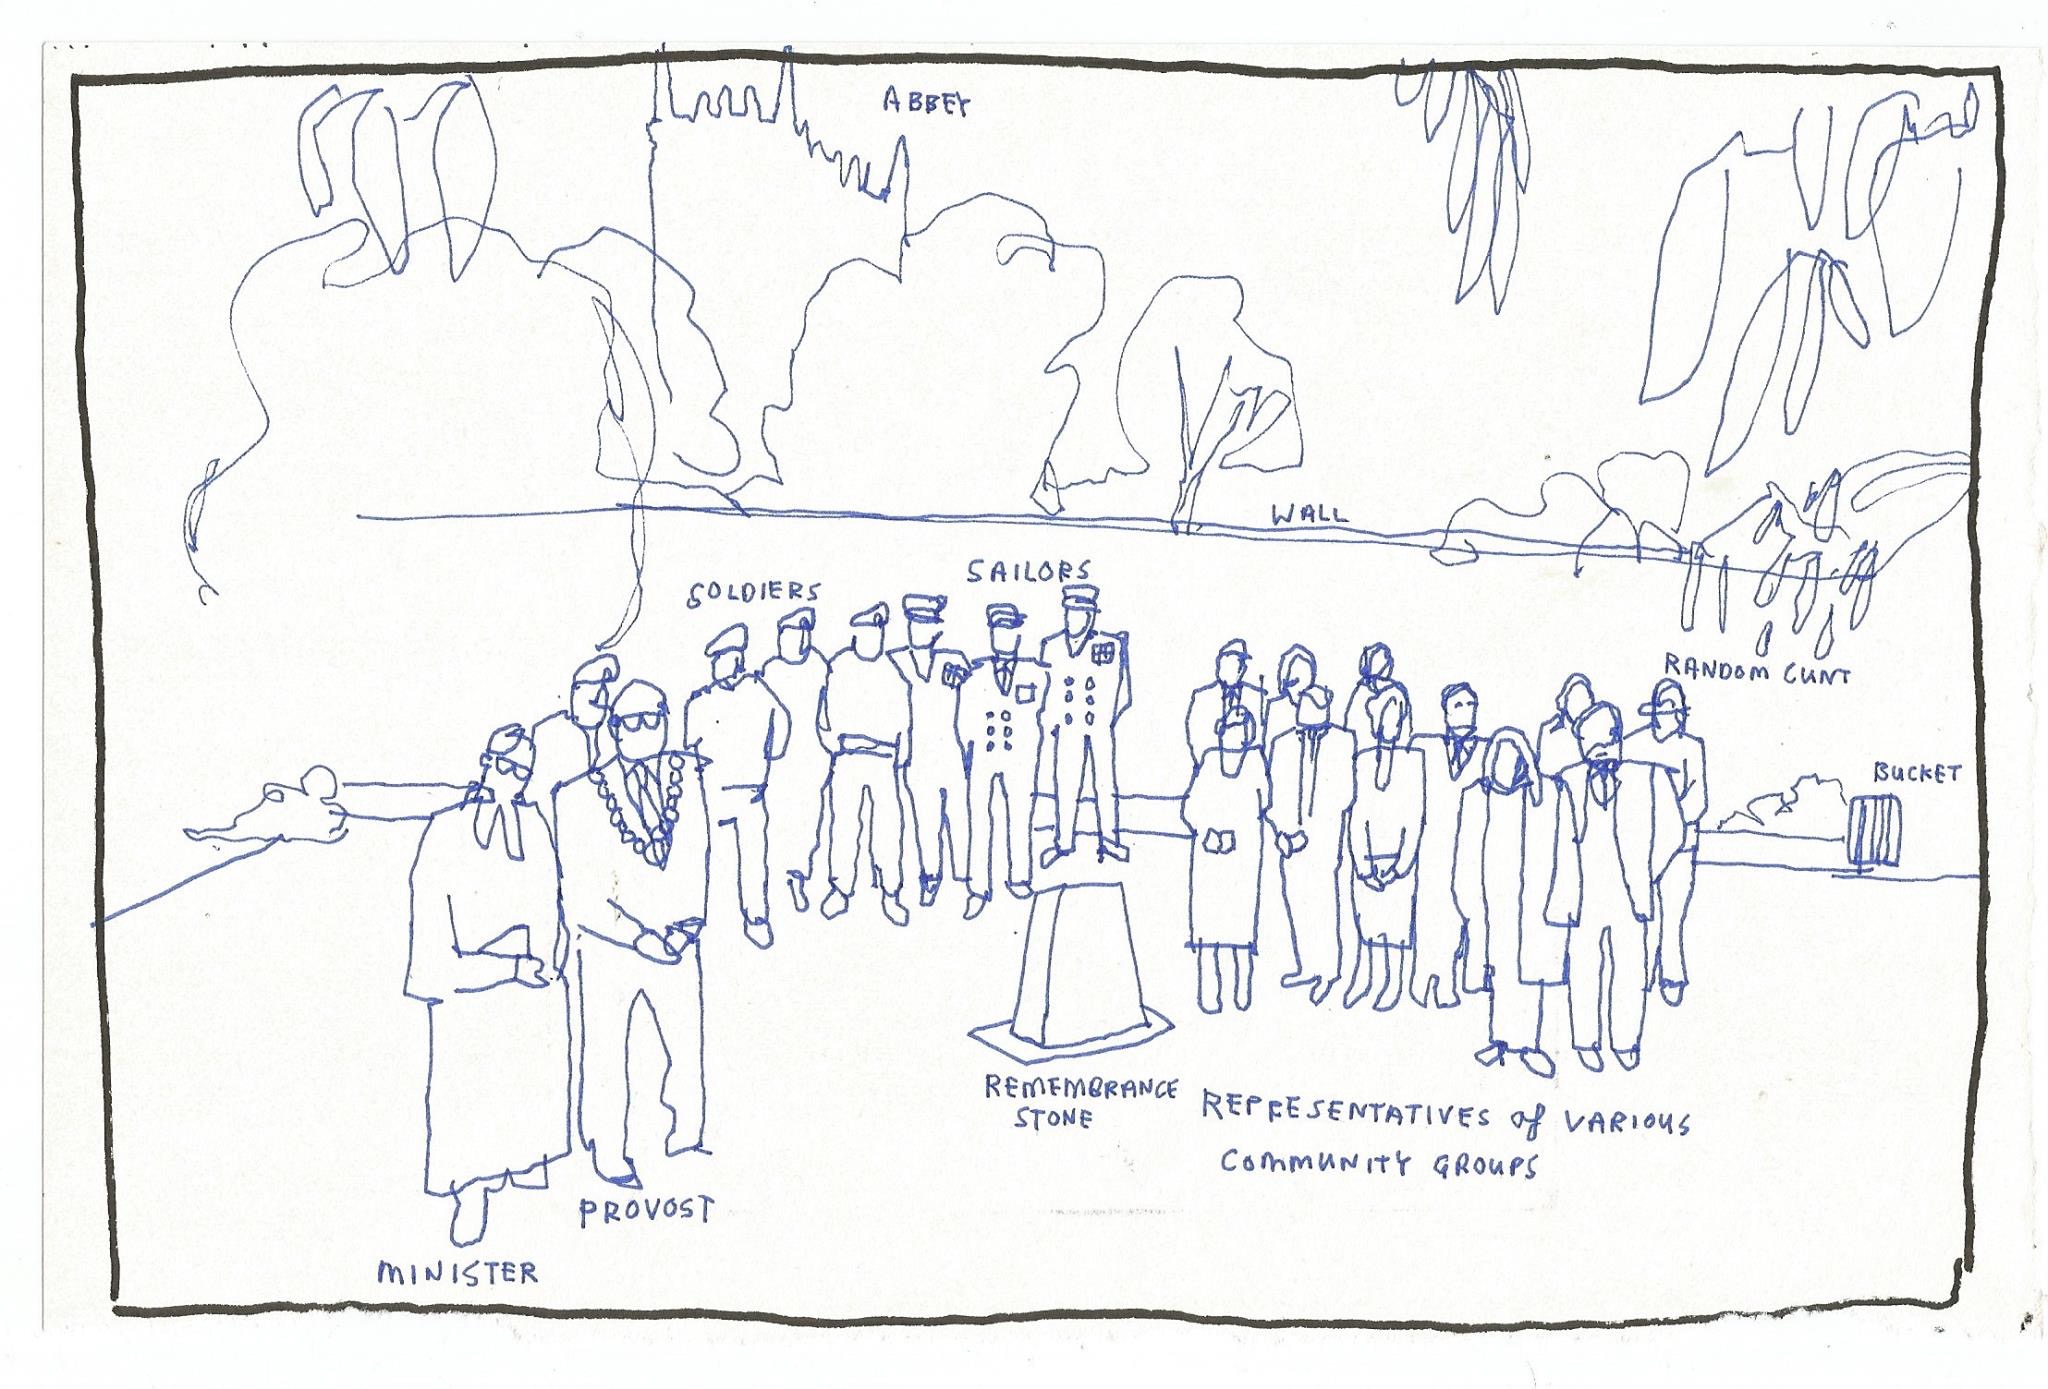 ABBEY
WALL
SAILORS
SOLDIERS
RANDOM CUNT
BUCKET
REMEMBRANCE
STONE
REPRESENTATIVES of VARIOUS
COMMUNITY GROUPS
PROVOST
MINISTER